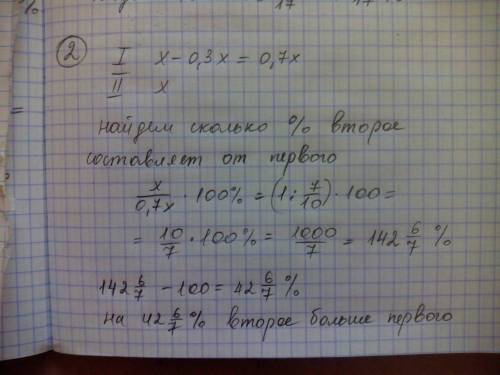 2
I x - 0,3x = 0,7x
II x
найдем сколько % второе
составляет от первого
x/0,7x · 100% = (1 : 7/10) · 100 =
= 10/7 · 100% = 1000/7 = 142 6/7 %
142 6/7 - 100 = 42 6/7 %
на 42 6/7 % второе больше первого